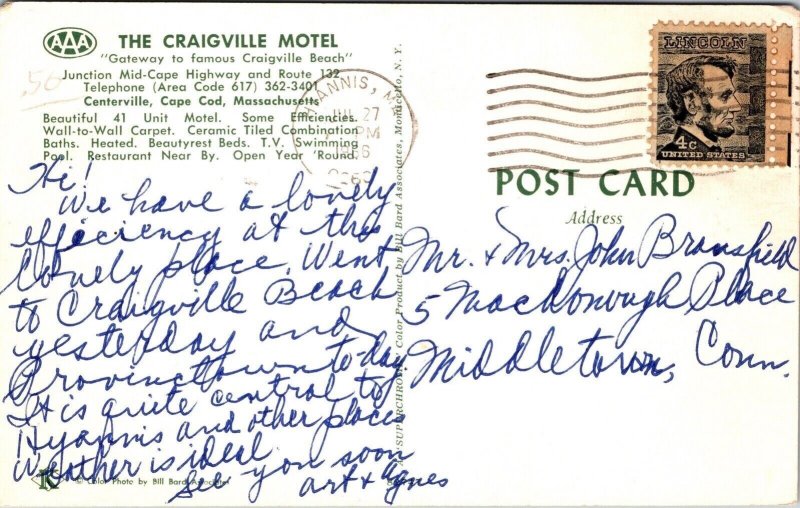 AAA THE CRAIGVILLE MOTEL
"Gateway to famous Craigville Beach"
Junction Mid-Cape Highway and Route 132
Telephone (Area Code 617) 362-3401
Centerville, Cape Cod, Massachusetts
Beautiful 41 Unit Motel. Some Efficiencies.
Wall-to-Wall Carpet. Ceramic Tiled Combination
Baths. Heated. Beautyrest Beds. T.V. Swimming
Pool. Restaurant Near By. Open Year 'Round.
.50
Hi!
We have a lovely
efficiency at this
lovely place. Went
to Craigville Beach
yesterday and
Provincetown to-day
It is quite central to
Hyannis and other places
Weather is ideal
See you soon
Art & Agnes
K
© Color Photo by Bill Bard Associates
SUPERCHROME Color Product by Bill Bard Associates, Monticello, N. Y.
HYANNIS, M
JUL 27
PM
1966
LINCOLN
4c
UNITED STATES
POST CARD
Address
Mr. & Mrs. John Bransfield
5 Macdonough Place
Middletown, Conn.